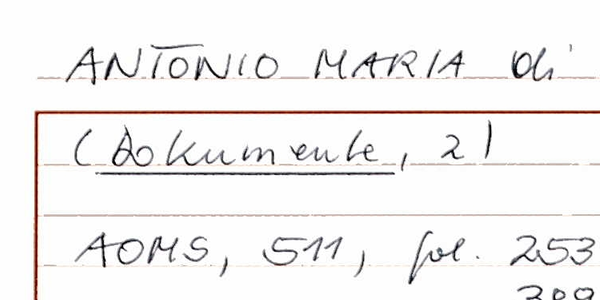 ANTONIO MARIA di
(Dokumente, 2)
AOMS, 511, fol. 253